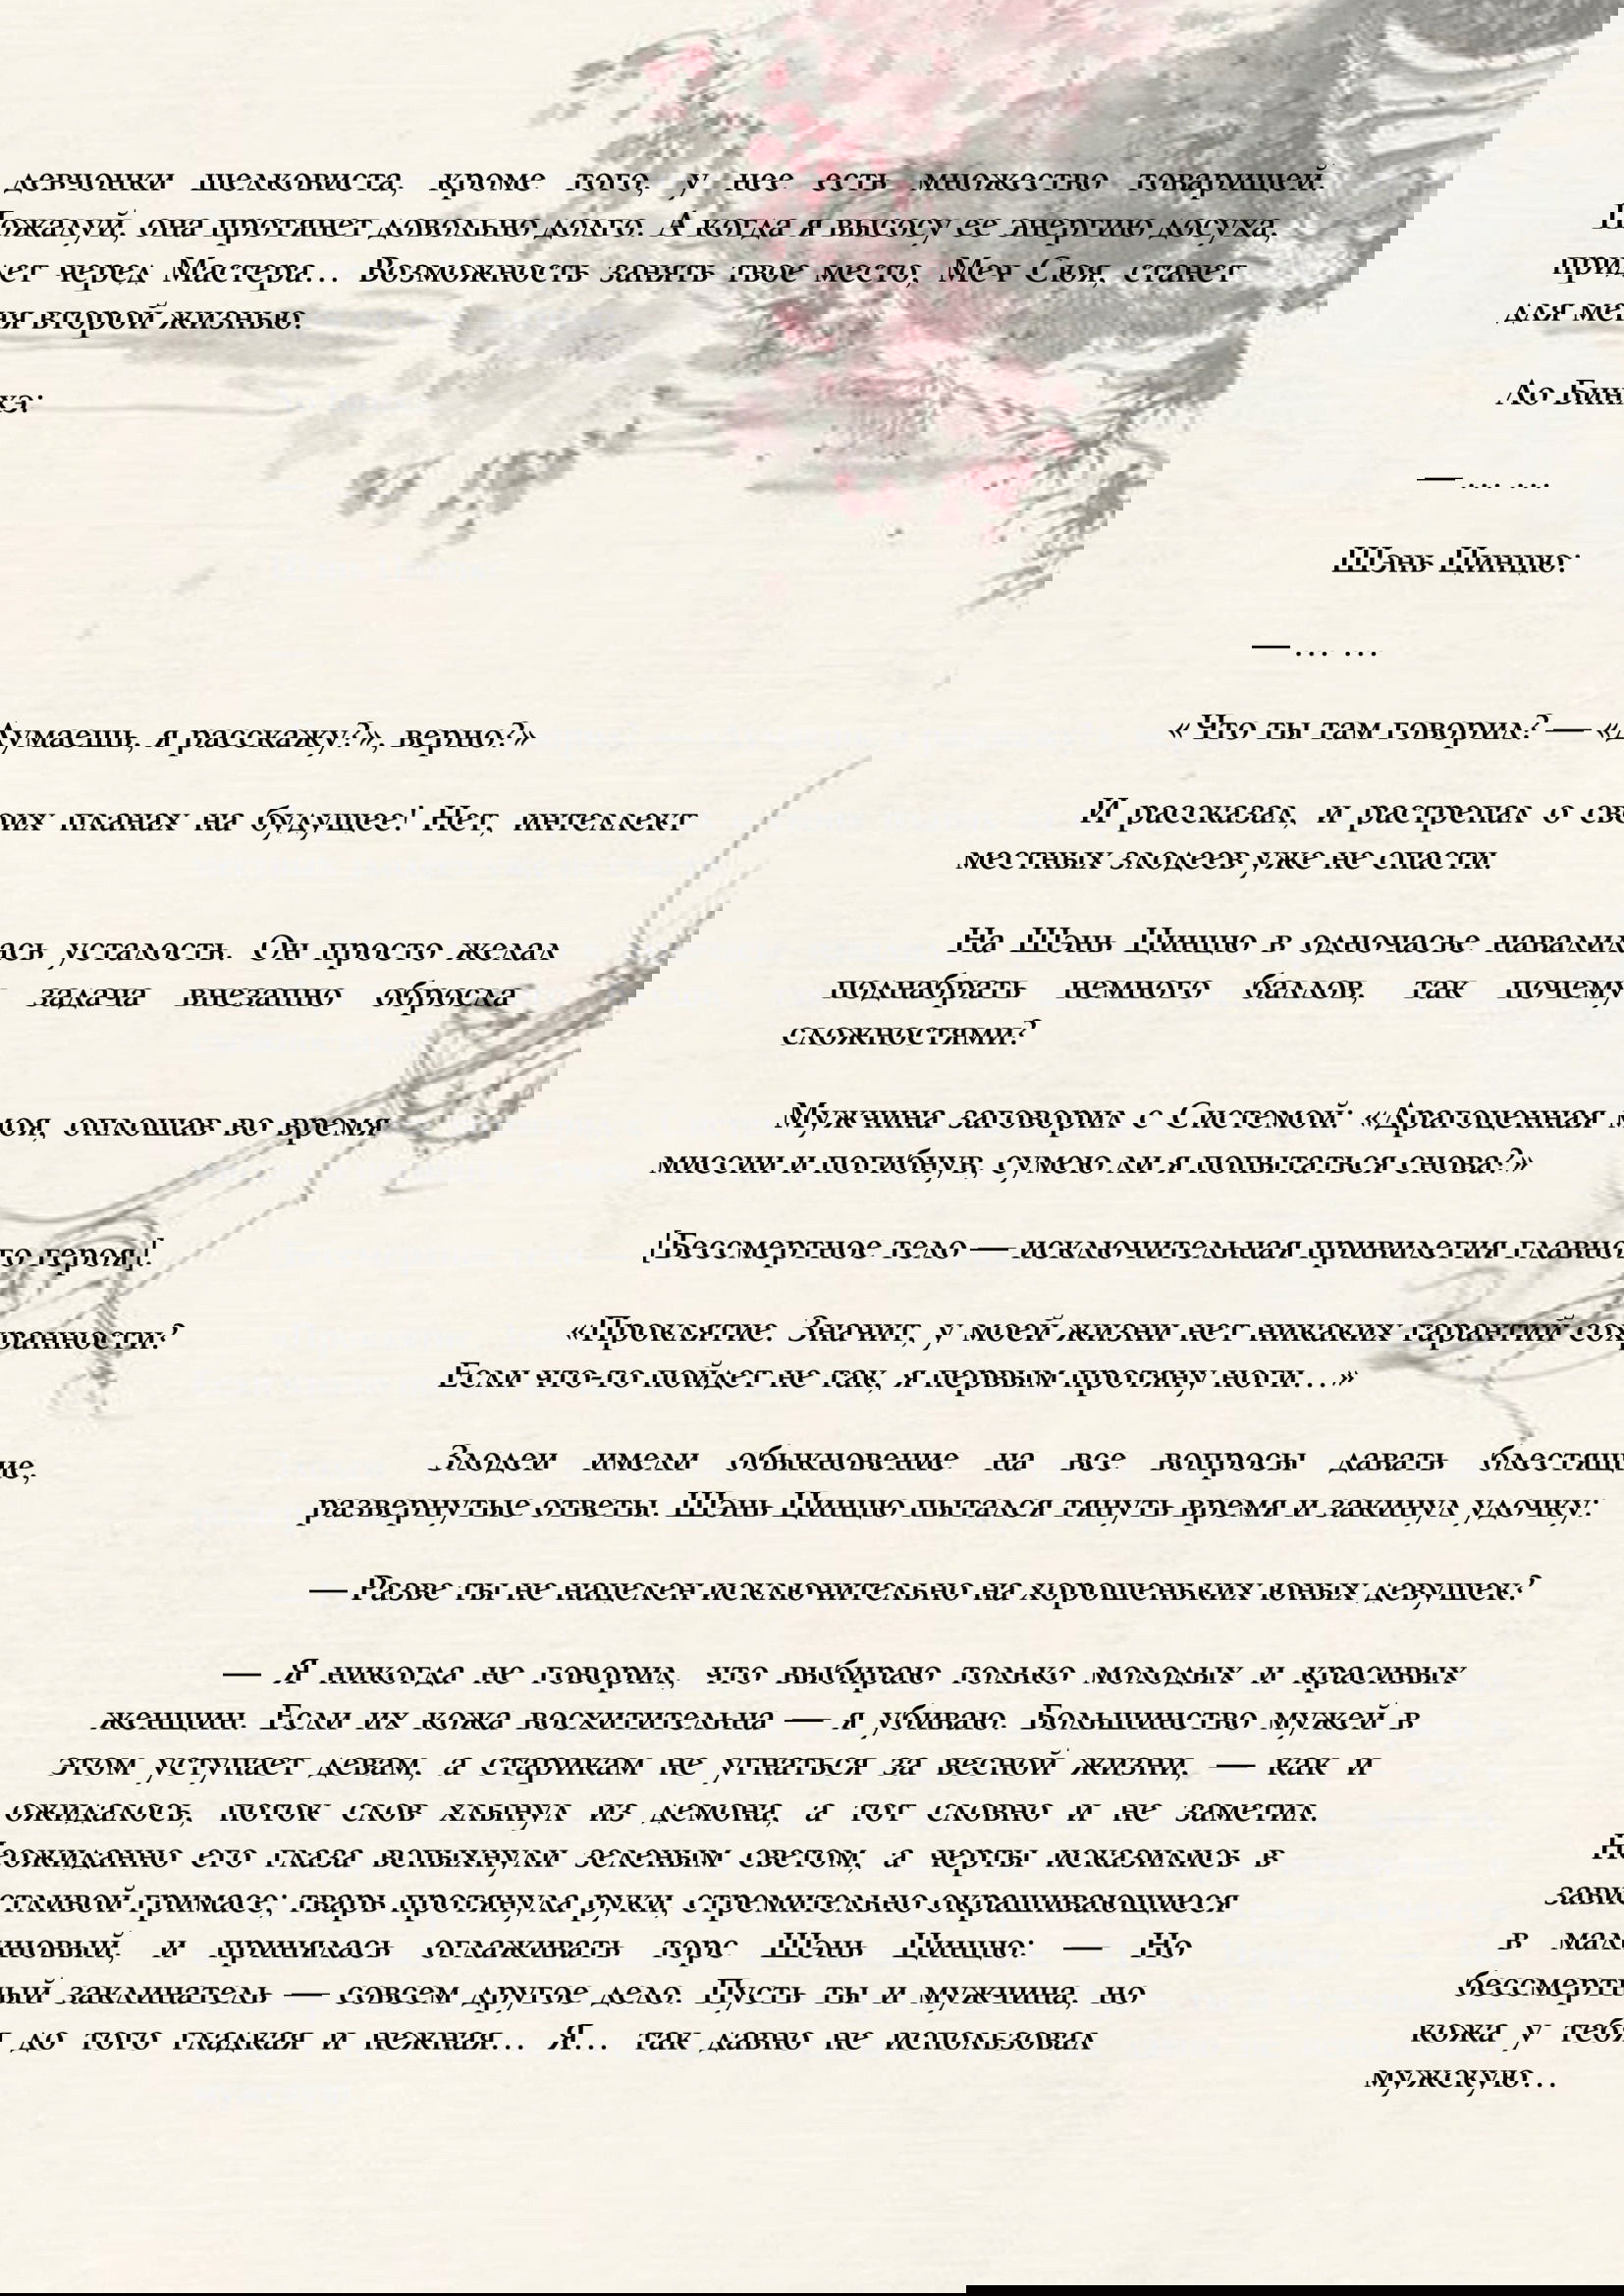 девчонки шелковиста, кроме того, у нее есть множество товарищей.
Пожалуй, она протянет довольно долго. А когда я высосу ее энергию досуха,
придет черед Мастера… Возможность занять твое место, Меч Сюя, станет
для меня второй жизнью.
Ло Бинхэ:
— … …
Шэнь Цинцю:
— … …
«Что ты там говорил? — «Думаешь, я расскажу?», верно?»
И рассказал, и растрепал о своих планах на будущее! Нет, интеллект
местных злодеев уже не спасти.
На Шэнь Цинцю в одночасье навалилась усталость. Он просто желал
поднабрать немного баллов, так почему задача внезапно обросла
сложностями?
Мужчина заговорил с Системой: «Драгоценная моя, оплошав во время
миссии и погибнув, сумею ли я попытаться снова?»
[Бессмертное тело — исключительная привилегия главного героя.]
«Проклятие. Значит, у моей жизни нет никаких гарантий сохранности?
Если что-то пойдет не так, я первым протяну ноги…»
Злодеи имели обыкновение на все вопросы давать блестящие,
развернутые ответы. Шэнь Цинцю пытался тянуть время и закинул удочку:
— Разве ты не нацелен исключительно на хорошеньких юных девушек?
— Я никогда не говорил, что выбираю только молодых и красивых
женщин. Если их кожа восхитительна — я убиваю. Большинство мужей в
этом уступает девам, а старикам не угнаться за весной жизни, — как и
ожидалось, поток слов хлынул из демона, а тот словно и не заметил.
Неожиданно его глаза вспыхнули зеленым светом, а черты исказились в
завистливой гримасе; тварь протянула руки, стремительно окрашивающиеся
в малиновый, и принялась оглаживать торс Шэнь Цинцю: — Но
бессмертный заклинатель — совсем другое дело. Пусть ты и мужчина, но
кожа у тебя до того гладкая и нежная… Я… так давно не использовал
мужскую…